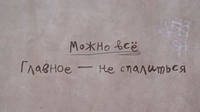 можно всё
Главное — не спалиться